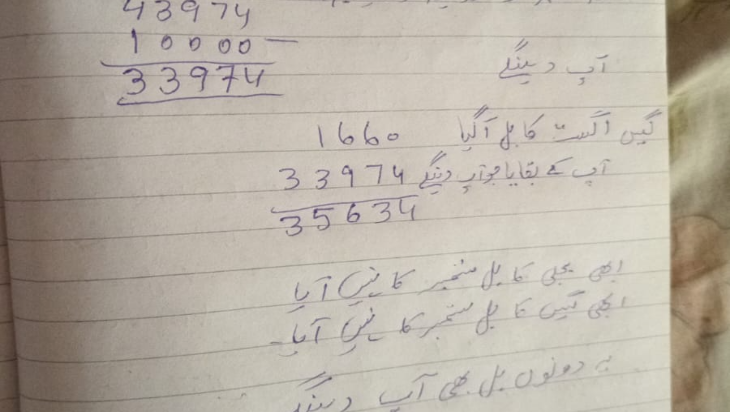 43974
10000 —
33974
آپ دینگے
گیس اگست کا بل آگیا 1660
آپ کے بقایا جو آپ دینگے 33974
35634
ابھی بجلی کا بل ستمبر کا نہیں آیا
ابھی گیس کا بل ستمبر کا نہیں آیا۔
یہ دونوں بل بھی آپ دینگے